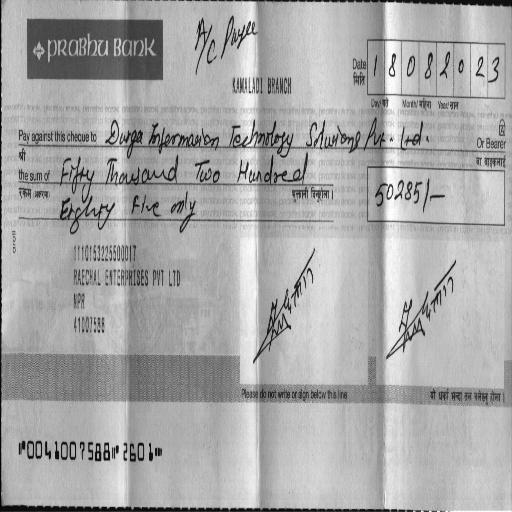 PRABHU BANK
A/C Payee
KAMALADI BRANCH
Date 18082023
मिति
Day/गते Month/महिना Year/साल
Pay against this cheque to Durga Information Technology Solutions Pvt. Ltd. Or Bearer
श्री वा वाहकलाई
the sum of Fifty Thousand Two Hundred
रुकम (अक्षरमा)
Eighty Five only
50285/-
1110153225500017
RAECHAL ENTERPRISES PVT LTD
NPR
41007588
Please do not write or sign below this line
⑈0041007588⑈2601⑈